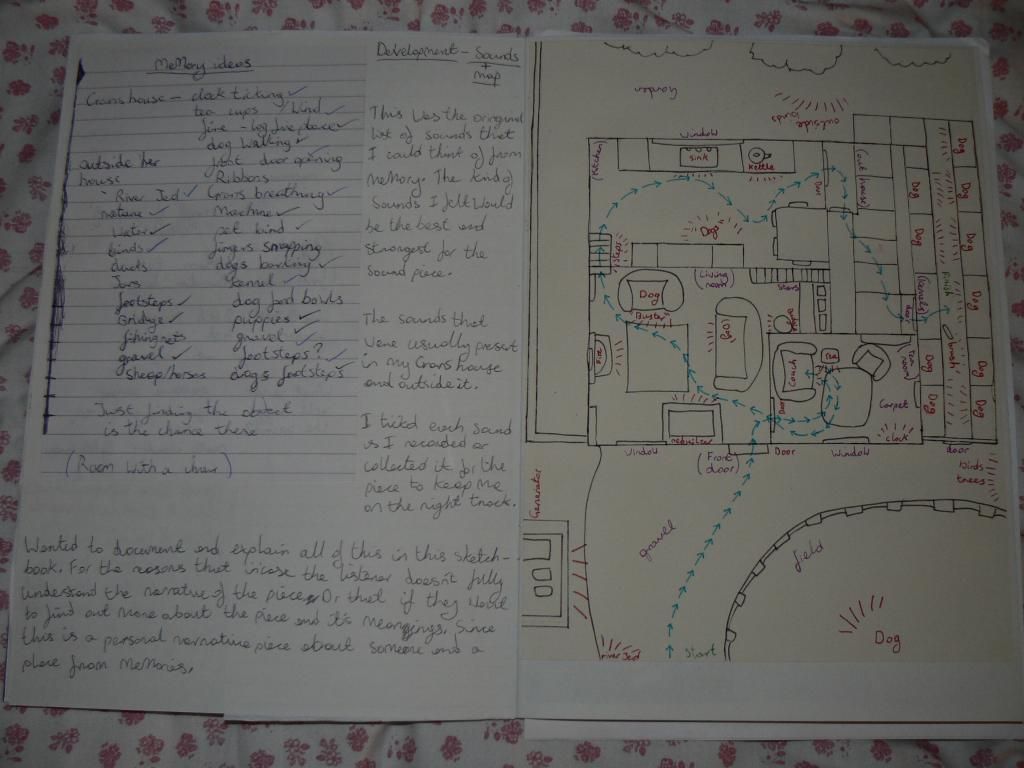 Memory ideas
Grans house - clock ticking
tea cups / kind
fire - log fire place
dog walking
outside her
joint door opening
house
Ribbons
River Jed
Grans breathing
nature
Machine
Water
pet bind
birds
fingers snapping
ducts
dogs barking
Jars
kennel
footsteps
dog food bowls
Bridge
puppies
fishing nets
gravel
gravel
footsteps?
sheep/horses
dogs footsteps
Just finding the object
is the chance there
(Room with a chair)
Development - Sounds
+
map
This was the original
list of sounds that
I could think of from
memory. The kind of
sounds I felt would
be the best and
strongest for the
sound piece.
The sounds that
were usually present
in my Grans house
and outside it.
I ticked each sound
as I recorded or
collected it for the
piece to keep me
on the right track.
Wanted to document and explain all of this in this sketch-
book. For the reasons that incase the listener doesn't fully
understand the narrative of the piece, Or that if they want
to find out more about the piece and it's meanings. Since
this is a personal narrative piece about someone and a
place from memories.
Garden
outside
birds
window
(Kitchen)
sink
kettle
Door
Dog
steps
(Living
room)
stairs
Dog
Buster
Dog
fire
couch
carpet
clock
(Kennels)
Door
Dog
Dog
Dog
Dog
Dog
Dog
Dog
Dog
Dog
Dog
finish
window
(Front
door)
Door
Window
door
birds
trees
Generator
gravel
field
Dog
River Jed
Start